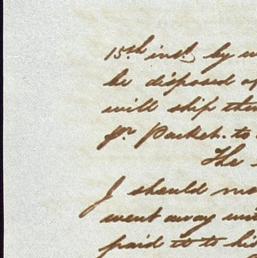 15th inst. by
be disposed of
will ship
pr. Packet. to
The
I should
went away
paid to